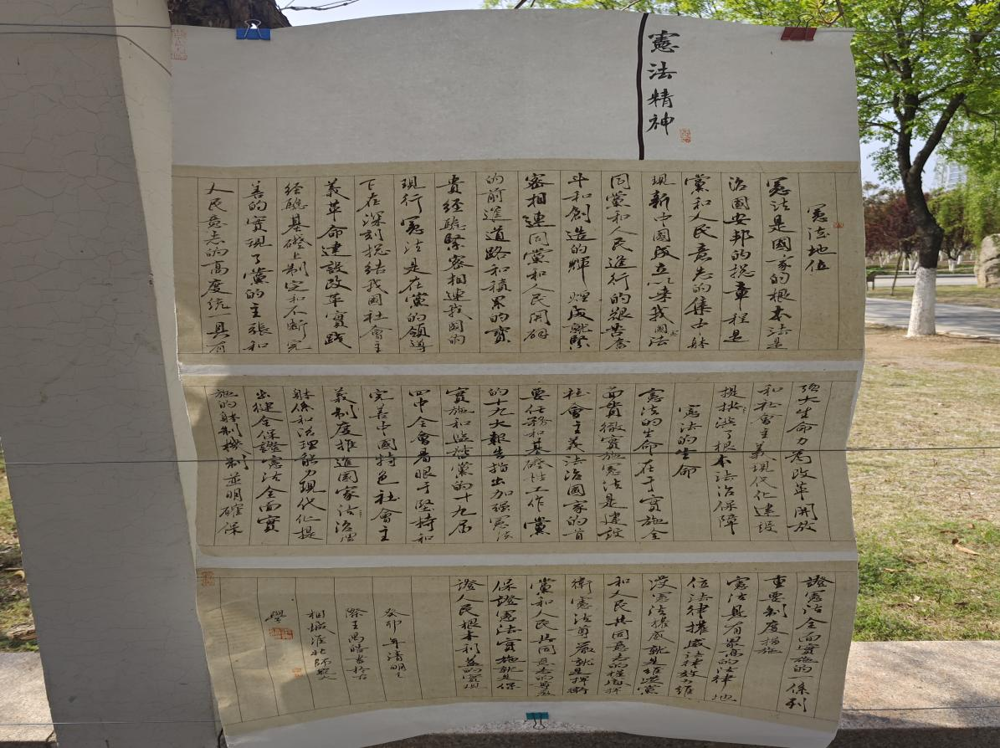 憲法精神
憲法地位
憲法是國家的根本法是
治國安邦的揔章程是
黨和人民意志的集中體
現新中國成立以來我國憲法
同黨和人民進行的艱苦奮
斗和創造的輝煌成就緊
密相連同黨和人民開闢
的前進道路和積累的寶
貴經驗緊密相連我國的
現行憲法是在黨的領導
下在深刻揔結我國社會主
義革命建設改革實踐
經驗基礎上制定和不斷完
善的實現了黨的主張和
人民意志的高度統一具有
強大生命力為改革開放
和社會主義現代化建設
提供了根本法治保障
憲法的生命
憲法的生命在于實施全
面貫徹實施憲法是建設
社會主義法治國家的首
要任務和基礎性工作黨
的十九大報告指出加強憲法
實施和監督黨的十九屆
四中全會着眼于堅持和
完善中國特色社會主
義制度推進國家治理
體系和治理能力現代化提
出健全保證憲法全面實
施的體制機制並明確保
證憲法全面實施的一係列
重要制度措施
憲法具有最高的法律地
位法律權威法律效力維
護憲法權威就是維護黨
和人民共同意志的權威捍
衛憲法尊嚴就是捍衛
黨和人民共同意志的尊嚴
保證憲法實施就是保
證人民根本利益的實現
癸卯年清明